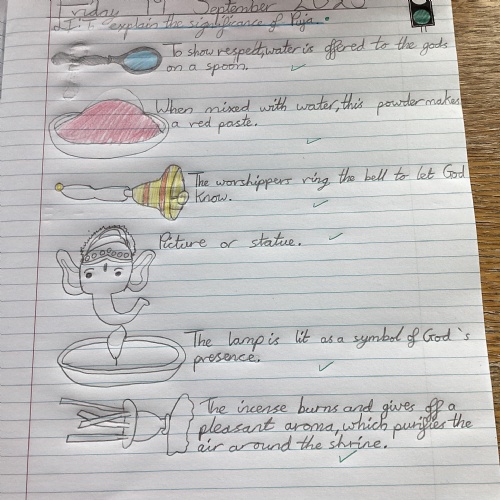 Friday September
L.I: To explain the significance of Puja.
To show respect, water is offered to the gods
on a spoon.
When mixed with water, this powder makes
a red paste.
The worshippers ring the bell to let God
know.
Picture or statue.
The lamp is lit as a symbol of God's
presence.
The incense burns and gives off a
pleasant aroma, which purifies the
air around the shrine.